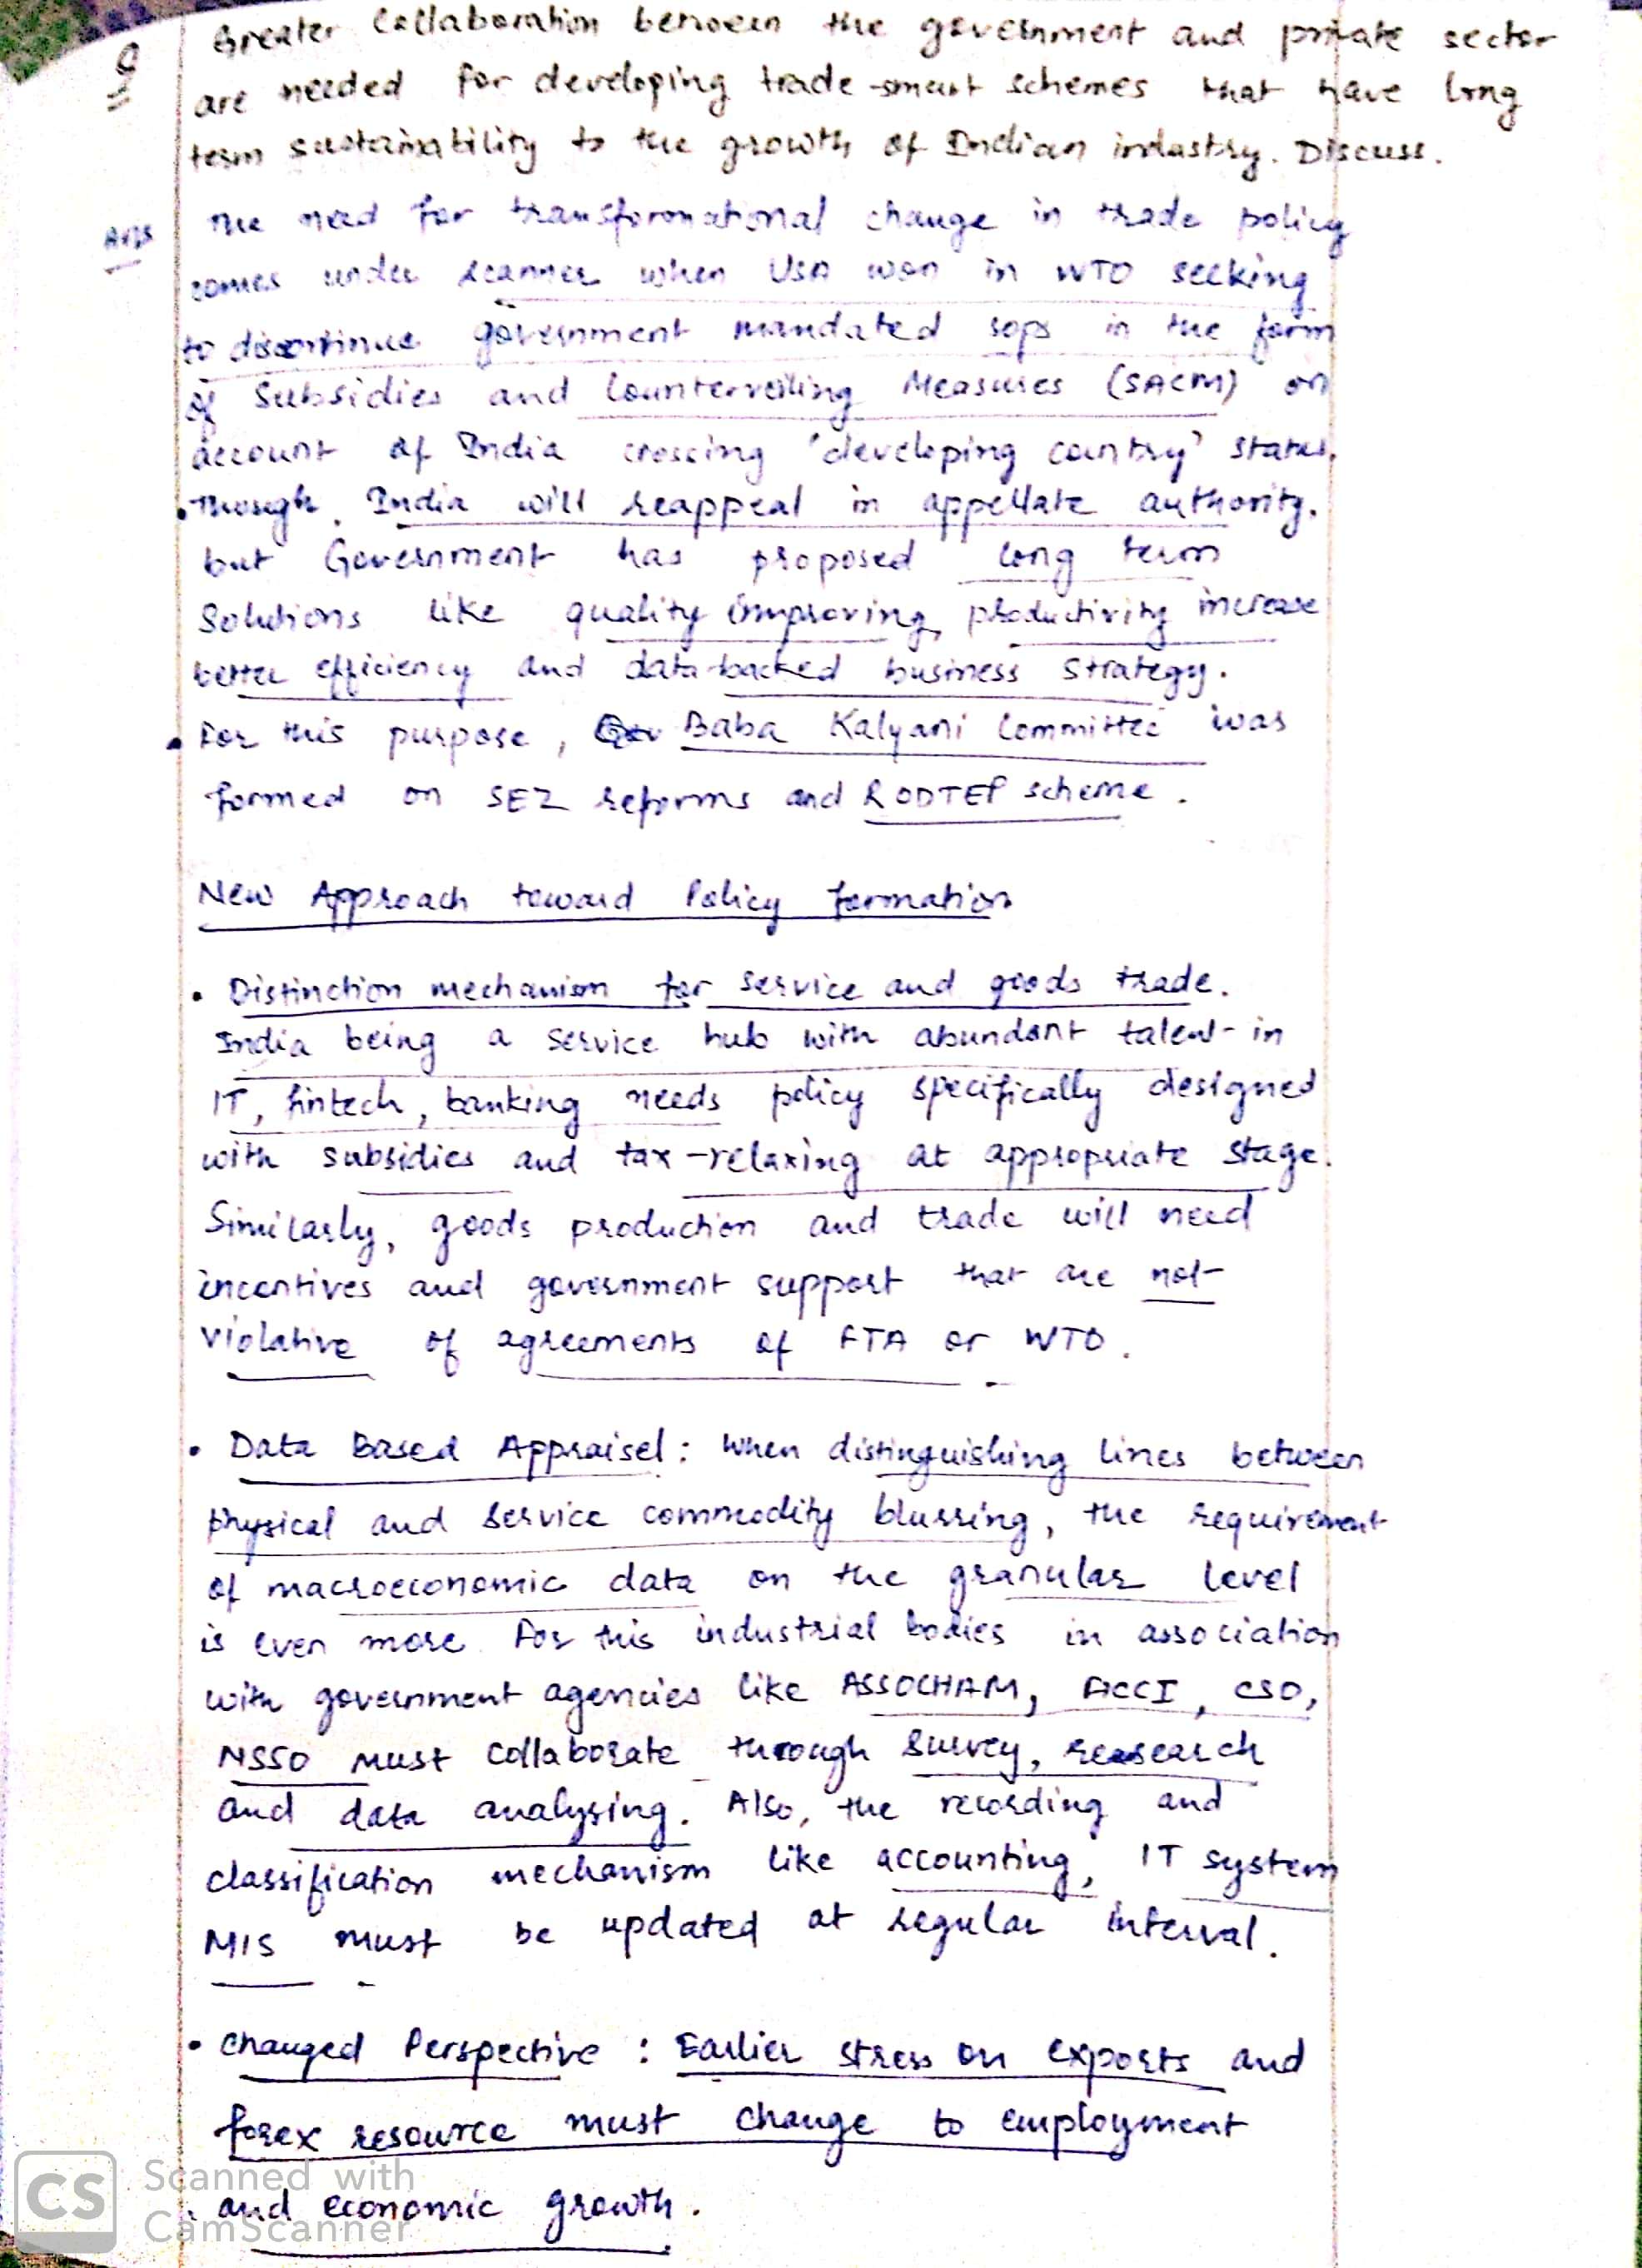 Q
Greater Collaboration between the government and private sector
are needed for developing trade-smart schemes that have long
term sustainability to the growth of Indian industry. Discuss.
Ans The need for transformational change in trade policy
comes under scanner when USA won in WTO seeking
to discontinue government mandated sops in the form
of Subsidies and Counterveiling Measures (SACM) on
account of India crossing 'developing country' status.
• Though, India will reappeal in appellate authority.
but Government has proposed long term
Solutions like quality improving, productivity increase
better efficiency and data-backed business strategy.
• For this purpose, Baba Kalyani Committee was
formed on SEZ reforms and RODTEP scheme.
New Approach toward Policy formation
• Distinction mechanism for service and goods trade.
India being a service hub with abundant talent in
IT, fintech, banking needs policy specifically designed
with subsidies and tax-relaxing at appropriate stage.
Similarly, goods production and trade will need
incentives and government support that are not
violative of agreements of FTA or WTO.
• Data Based Appraisel: When distinguishing lines between
physical and service commodity blurring, the requirement
of macroeconomic data on the granular level
is even more. For this industrial bodies in association
with government agencies like ASSOCHAM, FICCI, CSO,
NSSO must collaborate through survey, research
and data analysing. Also, the recording and
classification mechanism like accounting, IT system
MIS must be updated at regular interval.
• Changed Perspective : Earlier stress on exports and
forex resource must change to employment
and economic growth.
CS Scanned with
CamScanner